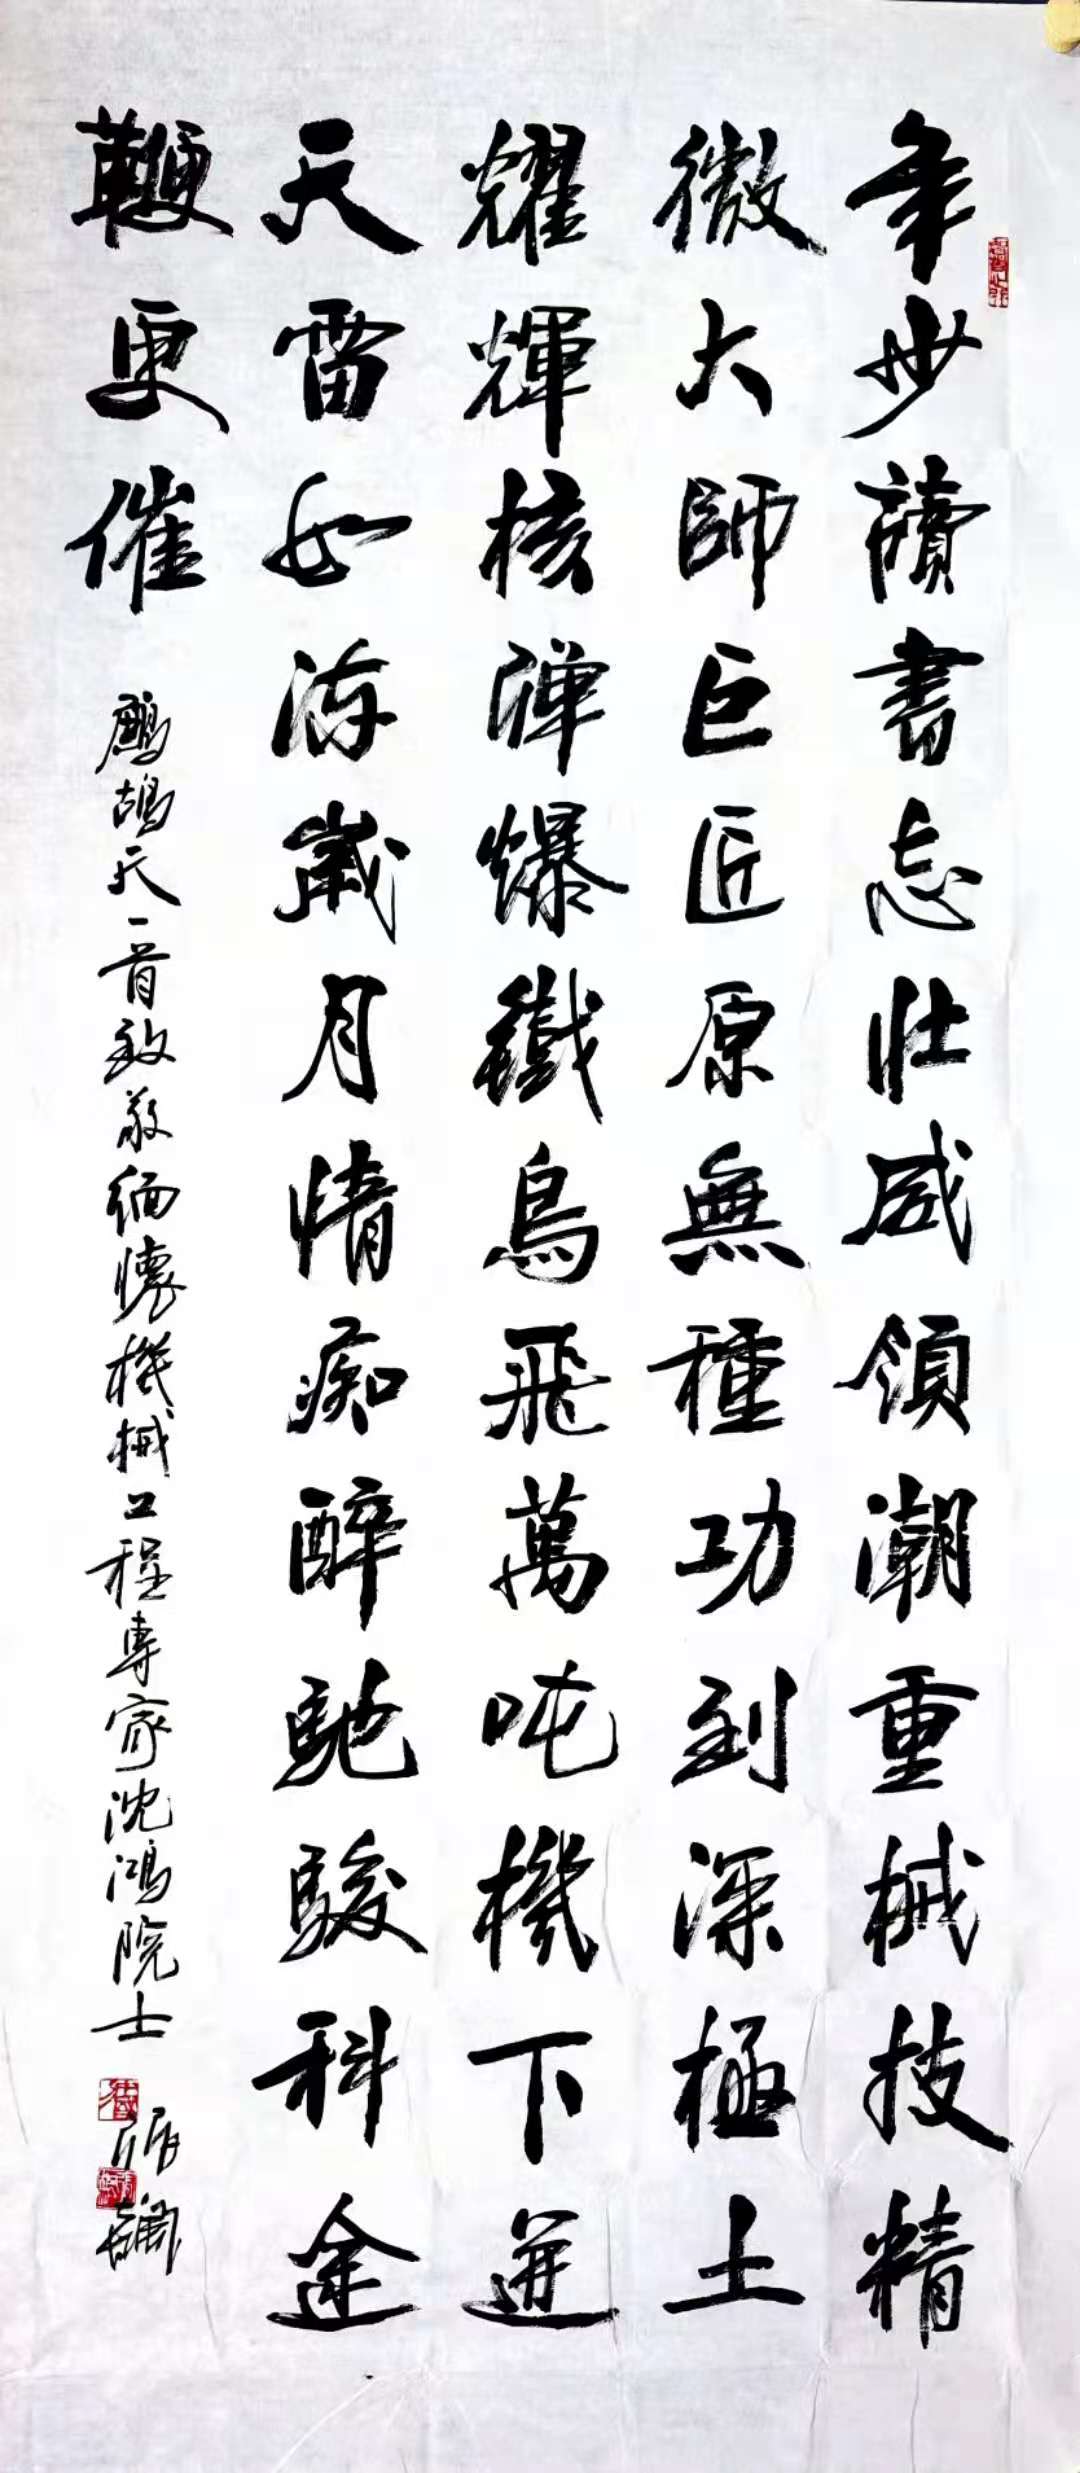 年少讀書忘壯威領潮重械技精
微大師巨匠原無種功到深極土
耀輝核弹爆鐵鳥飛萬吨機下迸
天雷如歲月情痴醉馳駿科途
鞭更催
鷓鴣天一首致敬緬懷機械工程專家沈鴻院士